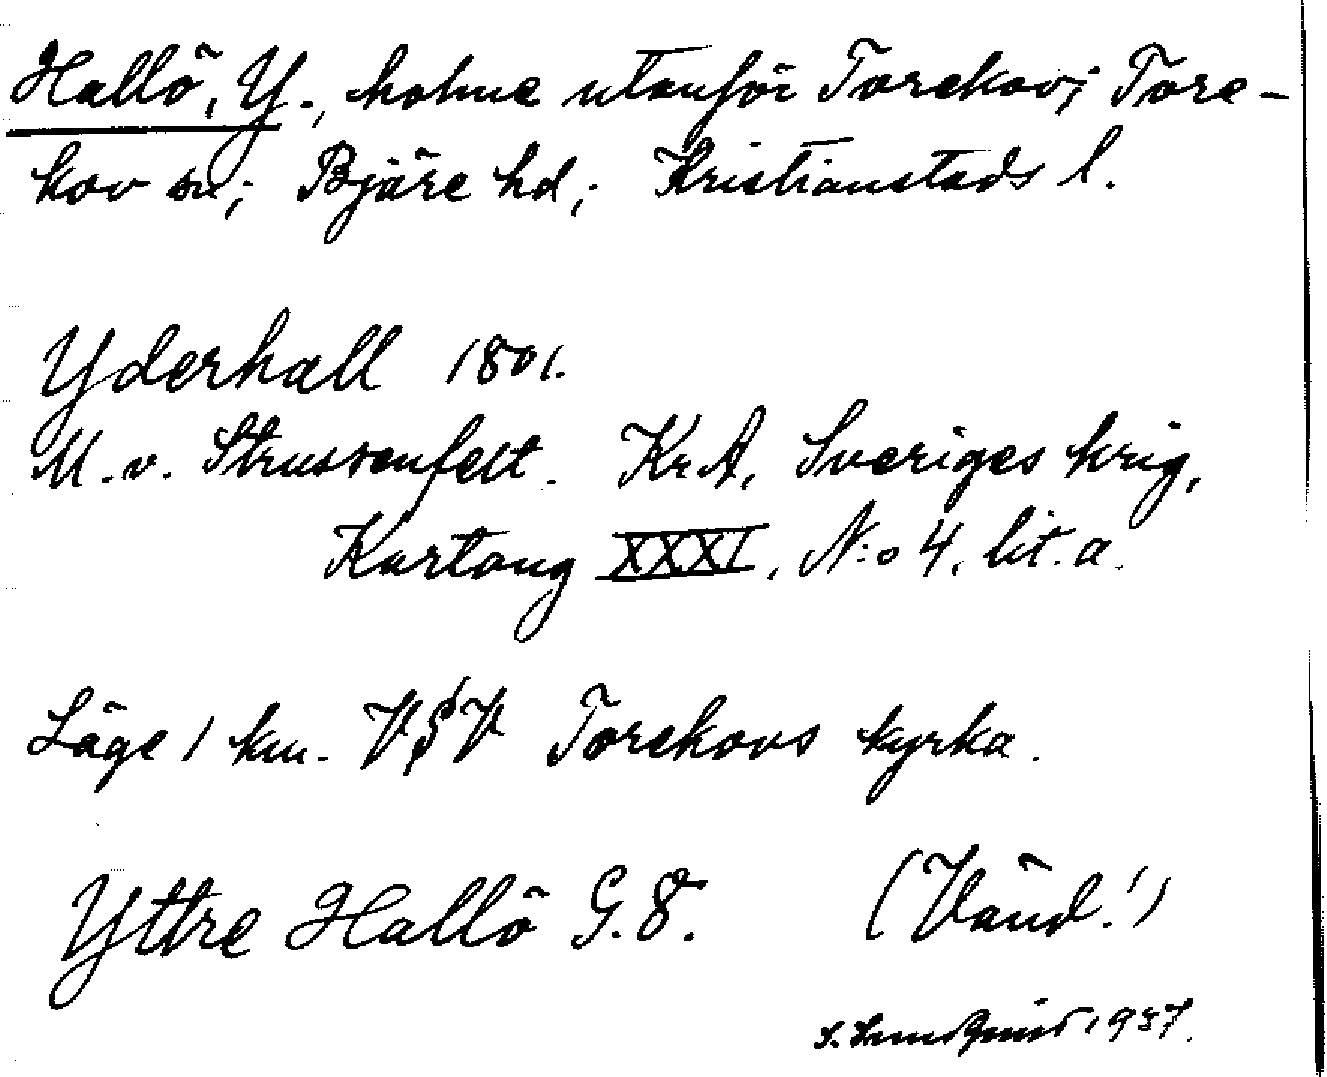 Hallö, Y., holme utanför Torekov; Tore-
kov sn; Bjäre hd; Kristianstads l.
Yderhall 1801.
M. v. Strussenfelt. Kr.A. Sveriges krig,
Kartong XXXI, N:o 4, lit. a.
Läge 1 km. VSV Torekovs kyrka.
Yttre Hallö G.8. (Vänd!)
S. Lundquist 1937.